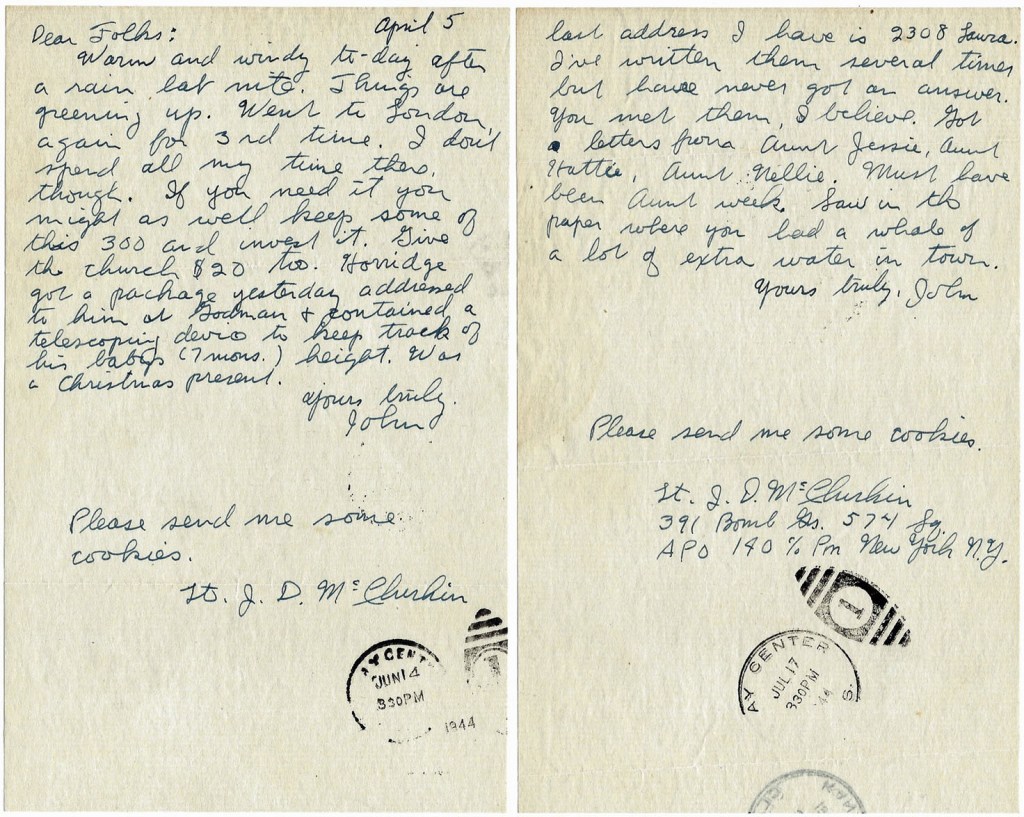 April 5
Dear Folks:
Warm and windy to-day after
a rain last nite. Things are
greening up. Went to London
again for 3rd time. I don't
spend all my time there,
though. If you need it you
might as well keep some of
this 300 and invest it. Give
the church $20 too. Horridge
got a package yesterday addressed
to him at Godman & contained a
telescoping device to keep track of
his babys (7 mons.) height. Was
a Christmas present.
Yours truly.
John
Please send me some
cookies.
Lt. J. D. McClurkin
AY CENT
JUN 14
330PM
1944
1
last address I have is 2308 Laura.
I've written them several times
but have never got an answer.
You met them, I believe. Got
letters from Aunt Jessie, Aunt
Hattie, Aunt Nellie. Must have
been Aunt week. Saw in the
paper where you had a whole of
a lot of extra water in town.
Yours truly, John
Please send me some cookies.
Lt. J. D. McClurkin
391 Bomb Gp. 574 Sq.
APO 140 % Pm New York N.Y.
1
AY CENTER
JUL 17
330PM
'44
S.